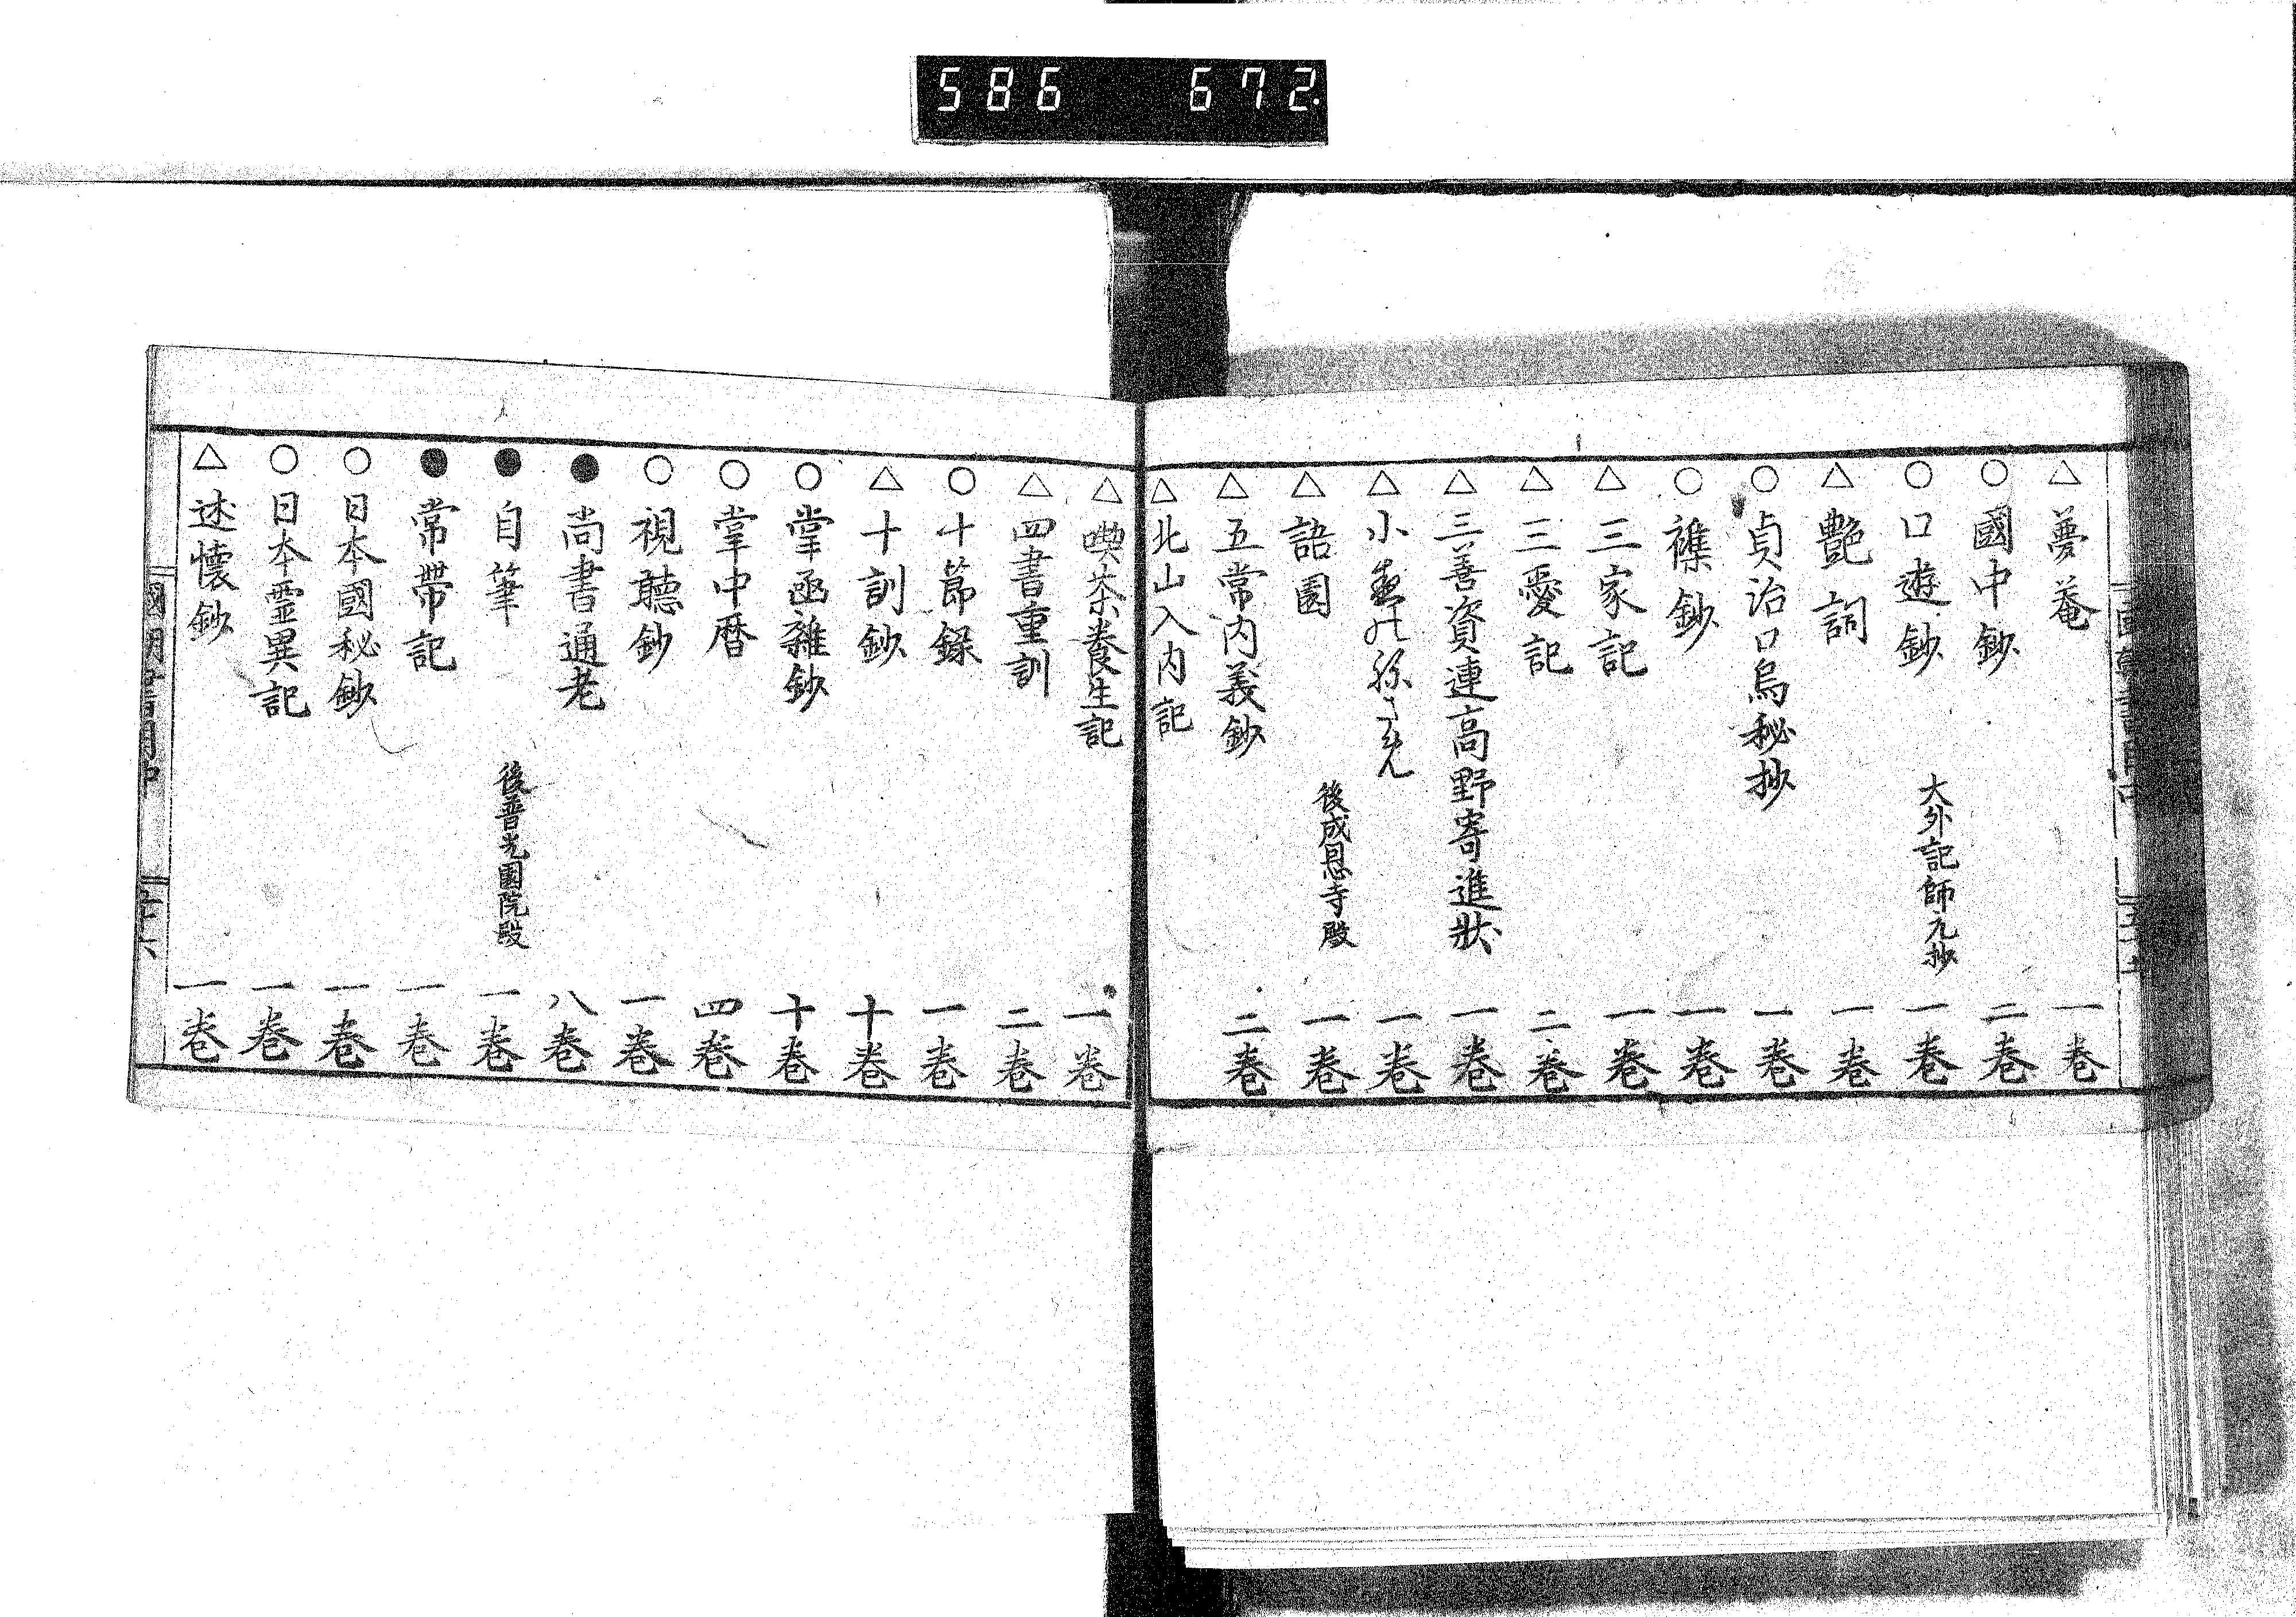 586 672.
△夢菴 一巻
○國中鈔 二巻
○口遊鈔 大外記師元抄 一巻
△艶詞 一巻
○貞治口烏秘抄 一巻
○襍鈔 一巻
△三家記 一巻
△三愛記 二巻
△三善資連高野寄進狀 一巻
△小 一巻
△語園 後成恩寺殿 一巻
△五常内義鈔 二巻
△北山入内記
△喫茶養生記 一巻
△四書重訓 二巻
○十節録 一巻
△十訓鈔 十巻
○掌函雜鈔 十巻
○掌中暦 四巻
○視聽鈔 一巻
●尚書通老 八巻
●自筆 後普光園院殿 一巻
●常帶記 一巻
○日本國秘鈔 一巻
○日本霊異記 一巻
△述懷鈔 一巻